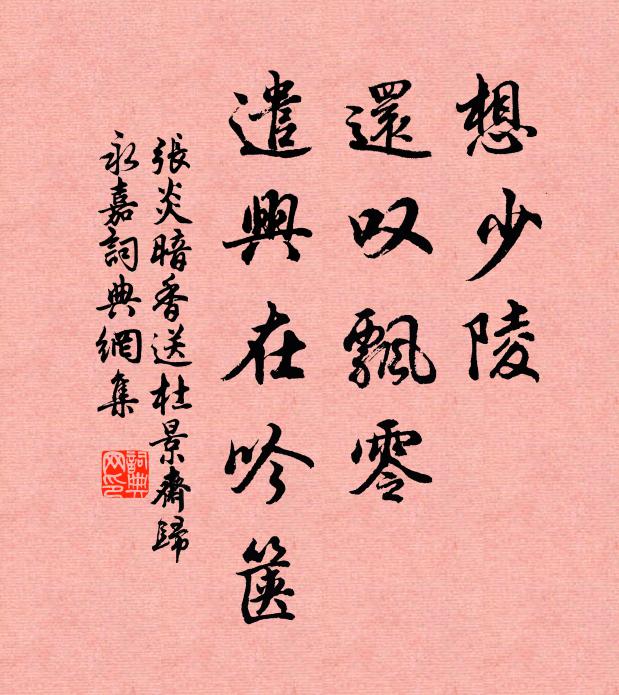 想少陵
還叹飄零
遣興在吟篋
張炎暗香送杜景齋歸
永嘉詞典網集
詞典網印